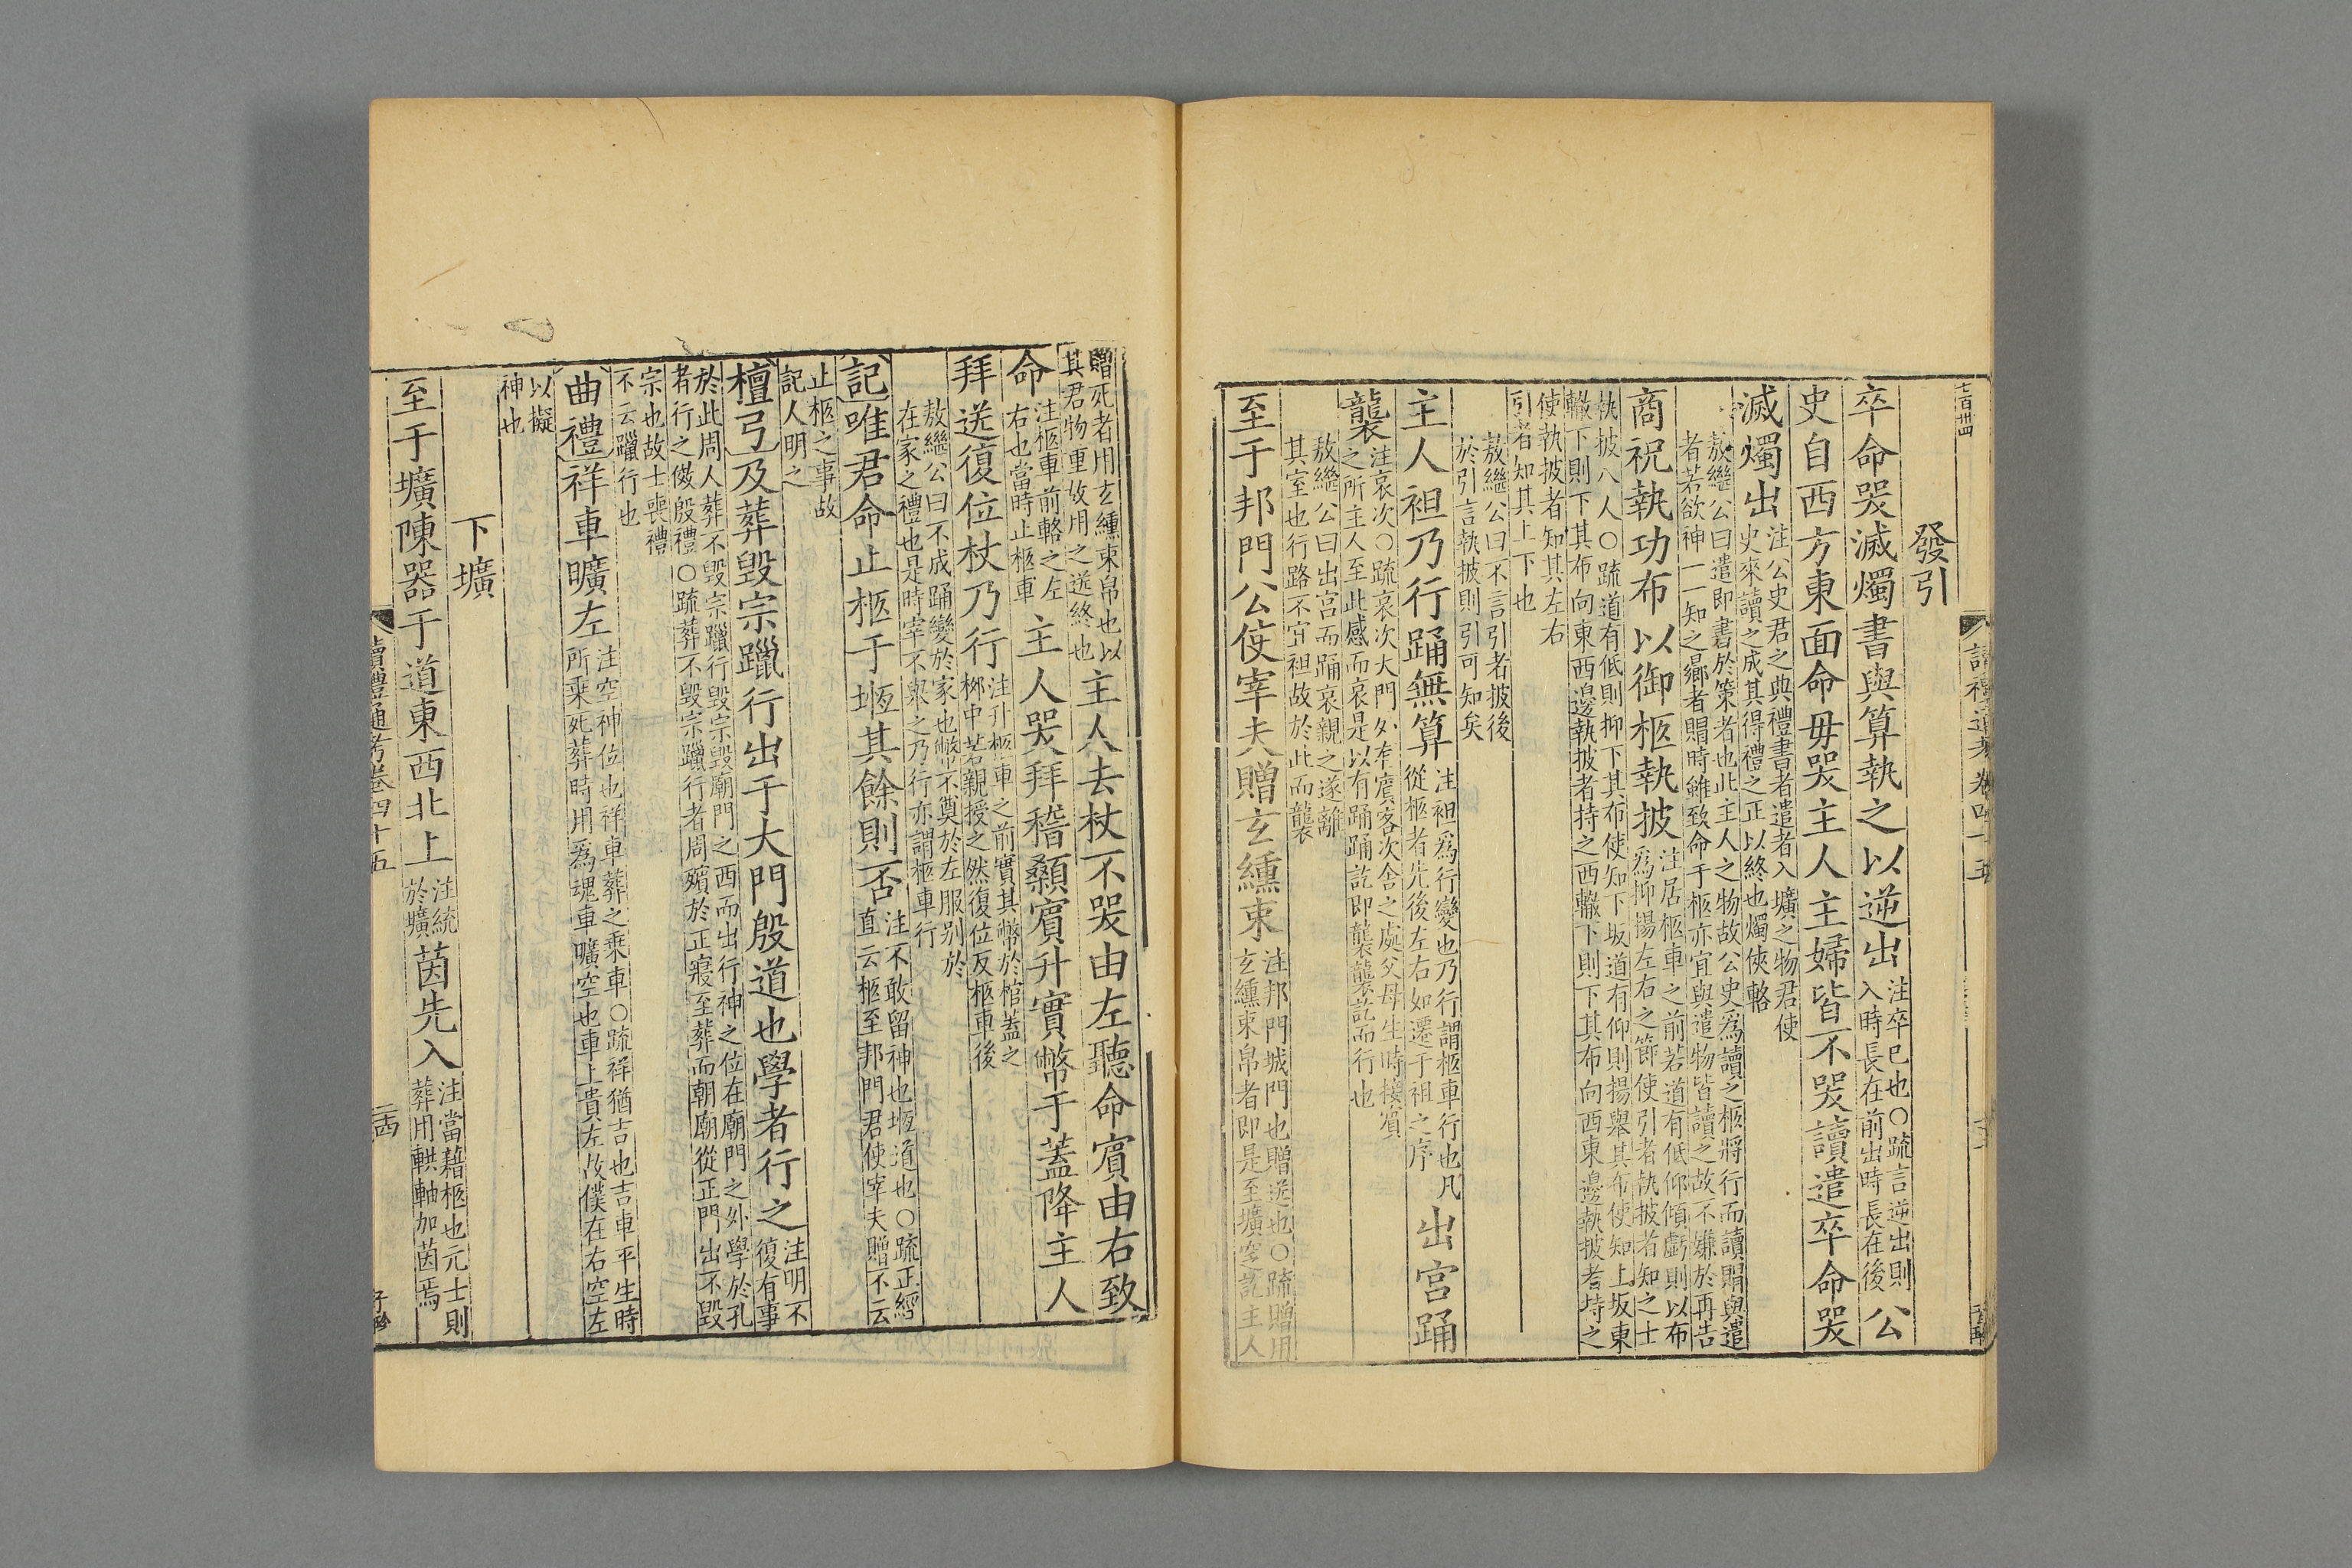 七百卅四
讀禮通考卷四十五
發引
卒命哭滅燭書與算執之以逆出
注卒已也○疏言逆出則
入時長在前出時長在後
公
史自西方東面命毋哭主人主婦皆不哭讀遣卒命哭
滅燭出
注公史君之典禮書者遣者入壙之物君使
史來讀之成其得禮之正以終也燭俠輅
敖繼公曰遣即書於策者也此主人之物故公史爲讀之柩將行而讀賵與遣
者若欲神一一知之鄉者賵時雖致命于柩亦宜與遣物皆讀之故不嫌於再告
商祝執功布以御柩執披
注居柩車之前若道有低仰傾虧則以布
爲抑揚左右之節使引者執披者知之士
執披八人○疏道有低則抑下其布使知下坂道有仰則揚舉其布使知上坂東
轍下則下其布向東西邊執披者持之西轍下則下其布向西東邊執披者持之
使執披者知其左右
引者知其上下也
敖繼公曰不言引者披後
於引言執披則引可知矣
主人袒乃行踊無算
注袒爲行變也乃行謂柩車行也凡
從柩者先後左右如遷于祖之序
出宮踊
襲
注哀次○疏哀次大門外有賓客次舍之處父母生時接賓
之所主人至此感而哀是以有踊踊訖即襲襲訖而行也
敖繼公曰出宮而踊哀親之遂離
其室也行路不宜袒故於此而襲
至于邦門公使宰夫贈玄纁束
注邦門城門也贈送也○疏贈用
玄纁束帛者即是至壙窆訖主人
贈死者用玄纁束帛也以
其君物重故用之送終也
主人去杖不哭由左聽命賓由右致
命
注柩車前輅之左
右也當時止柩車
主人哭拜稽顙賓升實幣于蓋降主人
拜送復位杖乃行
注升柩車之前實其幣於棺蓋之
柳中若親授之然復位反柩車後
敖繼公曰不成踊變於家也幣不奠於左服别於
在家之禮也是時宰不舉之乃行亦謂柩車行
記唯君命止柩于堩其餘則否
注不敢留神也堩道也○疏正經
直云柩至邦門君使宰夫贈不云
止柩之事故
記人明之
檀弓及葬毀宗躐行出于大門殷道也學者行之
注明不
復有事
於此周人葬不毀宗躐行毀宗毀廟門之西而出行神之位在廟門之外學於孔
者行之傚殷禮○疏葬不毀宗躐行者周殯於正寢至葬而朝廟從正門出不毀
宗也故士喪禮
不云躐行也
曲禮祥車曠左
注空神位也祥車葬之乘車○疏祥猶吉也吉車平生時
所乘死葬時用爲魂車曠空也車上貴左故僕在右空左
以擬
神也
下壙
至于壙陳器于道東西北上
注統
於壙
茵先入
注當藉柩也元士則
葬用輁軸加茵焉
讀禮通考卷四十五